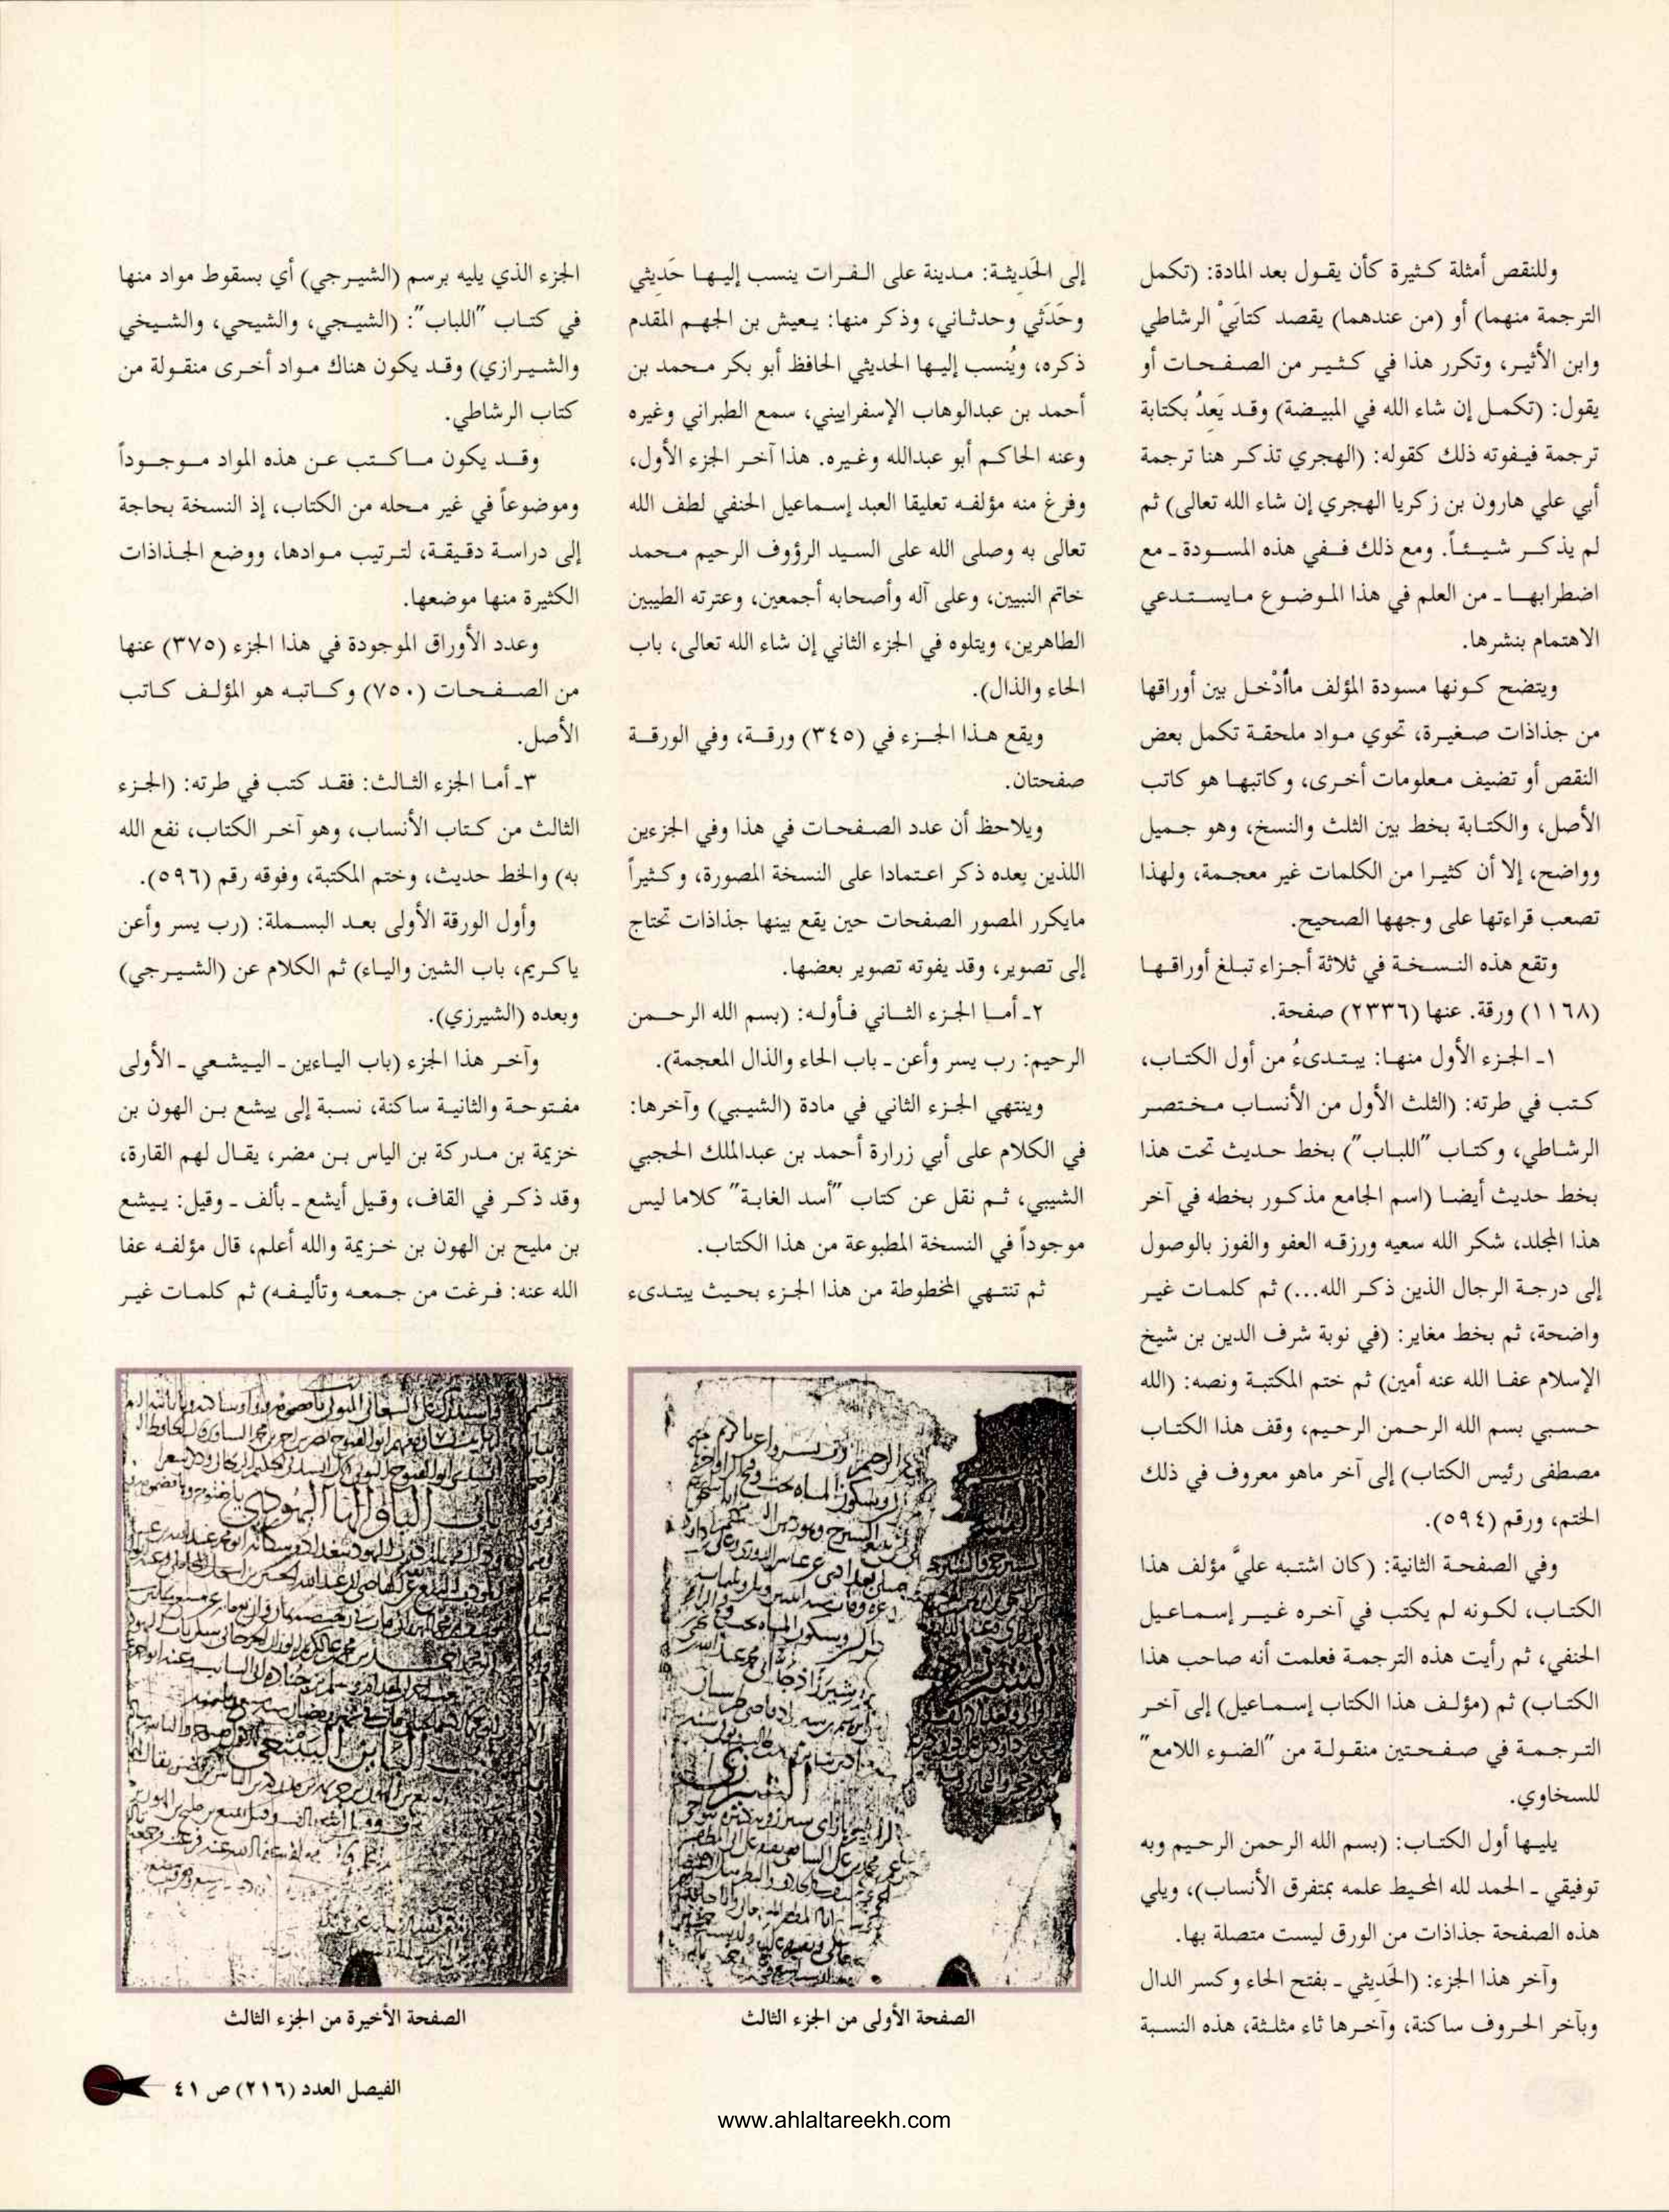 وللنقص أمثلة كثيرة كأن يقول بعد المادة: (تكمل
الترجمة منهما) أو (من عندهما) يقصد كتابَيْ الرشاطي
وابن الأثير، وتكرر هذا في كثير من الصفحات أو
يقول: (تكمل إن شاء الله في المبيضة) وقد يَعِدُ بكتابة
ترجمة فيفوته ذلك كقوله: (الهجري تذكر هنا ترجمة
أبي علي هارون بن زكريا الهجري إن شاء الله تعالى) ثم
لم يذكر شيئاً. ومع ذلك ففي هذه المسودة ـ مع
اضطرابها ـ من العلم في هذا الموضوع مايستدعي
الاهتمام بنشرها.
ويتضح كونها مسودة المؤلف ماأُدْخل بين أوراقها
من جذاذات صغيرة، تحوي مواد ملحقة تكمل بعض
النقص أو تضيف معلومات أخرى، وكاتبها هو كاتب
الأصل، والكتابة بخط بين الثلث والنسخ، وهو جميل
وواضح، إلا أن كثيرا من الكلمات غير معجمة، ولهذا
تصعب قراءتها على وجهها الصحيح.
وتقع هذه النسخة في ثلاثة أجزاء تبلغ أوراقها
(١١٦٨) ورقة. عنها (٢٣٣٦) صفحة.
١ـ الجزء الأول منها: يبتدىءُ من أول الكتاب،
كتب في طرته: (الثلث الأول من الأنساب مختصر
الرشاطي، وكتاب "اللباب") بخط حديث تحت هذا
بخط حديث أيضا (اسم الجامع مذكور بخطه في آخر
هذا المجلد، شكر الله سعيه ورزقه العفو والفوز بالوصول
إلى درجة الرجال الذين ذكر الله...) ثم كلمات غير
واضحة، ثم بخط مغاير: (في نوبة شرف الدين بن شيخ
الإسلام عفا الله عنه أمين) ثم ختم المكتبة ونصه: (الله
حسبي بسم الله الرحمن الرحيم، وقف هذا الكتاب
مصطفى رئيس الكتاب) إلى آخر ماهو معروف في ذلك
الختم، ورقم (٥٩٤).
وفي الصفحة الثانية: (كان اشتبه عليَّ مؤلف هذا
الكتاب، لكونه لم يكتب في آخره غير إسماعيل
الحنفي، ثم رأيت هذه الترجمة فعلمت أنه صاحب هذا
الكتاب) ثم (مؤلف هذا الكتاب إسماعيل) إلى آخر
الترجمة في صفحتين منقولة من "الضوء اللامع"
للسخاوي.
يليها أول الكتاب: (بسم الله الرحمن الرحيم وبه
توفيقي ـ الحمد لله المحيط علمه بمتفرق الأنساب)، ويلي
هذه الصفحة جذاذات من الورق ليست متصلة بها.
وآخر هذا الجزء: (الحَدِيثي ـ بفتح الحاء وكسر الدال
وبآخر الحروف ساكنة، وآخرها ثاء مثلثة، هذه النسبة
إلى الحَدِيثة: مدينة على الفرات ينسب إليها حَدِيثي
وحَدَثي وحدثاني، وذكر منها: يعيش بن الجهم المقدم
ذكره، ويُنسب إليها الحديثي الحافظ أبو بكر محمد بن
أحمد بن عبدالوهاب الإسفراييني، سمع الطبراني وغيره
وعنه الحاكم أبو عبدالله وغيره. هذا آخر الجزء الأول،
وفرغ منه مؤلفه تعليقا العبد إسماعيل الحنفي لطف الله
تعالى به وصلى الله على السيد الرؤوف الرحيم محمد
خاتم النبيين، وعلى آله وأصحابه أجمعين، وعترته الطيبين
الطاهرين، ويتلوه في الجزء الثاني إن شاء الله تعالى، باب
الحاء والذال).
ويقع هذا الجزء في (٣٤٥) ورقة، وفي الورقة
صفحتان.
ويلاحظ أن عدد الصفحات في هذا وفي الجزءين
اللذين بعده ذكر اعتمادا على النسخة المصورة، وكثيراً
مايكرر المصور الصفحات حين يقع بينها جذاذات تحتاج
إلى تصوير، وقد يفوته تصوير بعضها.
٢ـ أما الجزء الثاني فأوله: (بسم الله الرحمن
الرحيم: رب يسر وأعن ـ باب الحاء والذال المعجمة).
وينتهي الجزء الثاني في مادة (الشيبي) وآخرها:
في الكلام على أبي زرارة أحمد بن عبدالملك الحجبي
الشيبي، ثم نقل عن كتاب "أسد الغابة" كلاما ليس
موجوداً في النسخة المطبوعة من هذا الكتاب.
ثم تنتهي المخطوطة من هذا الجزء بحيث يبتدىء
الجزء الذي يليه برسم (الشيرجي) أي بسقوط مواد منها
في كتاب "اللباب": (الشيجي، والشيحي، والشيخي
والشيرازي) وقد يكون هناك مواد أخرى منقولة من
كتاب الرشاطي.
وقد يكون ماكتب عن هذه المواد موجوداً
وموضوعاً في غير محله من الكتاب، إذ النسخة بحاجة
إلى دراسة دقيقة، لترتيب موادها، ووضع الجذاذات
الكثيرة منها موضعها.
وعدد الأوراق الموجودة في هذا الجزء (٣٧٥) عنها
من الصفحات (٧٥٠) وكاتبه هو المؤلف كاتب
الأصل.
٣ـ أما الجزء الثالث: فقد كتب في طرته: (الجزء
الثالث من كتاب الأنساب، وهو آخر الكتاب، نفع الله
به) والخط حديث، وختم المكتبة، وفوقه رقم (٥٩٦).
وأول الورقة الأولى بعد البسملة: (رب يسر وأعن
ياكريم، باب الشين والياء) ثم الكلام عن (الشيرجي)
وبعده (الشيرزي).
وآخر هذا الجزء (باب الياءين ـ الييشعي ـ الأولى
مفتوحة والثانية ساكنة، نسبة إلى ييشع بن الهون بن
خزيمة بن مدركة بن الياس بن مضر، يقال لهم القارة،
وقد ذكر في القاف، وقيل أيشع ـ بألف ـ وقيل: ييشع
بن مليح بن الهون بن خزيمة والله أعلم، قال مؤلفه عفا
الله عنه: فرغت من جمعه وتأليفه) ثم كلمات غير
الصفحة الأولى من الجزء الثالث
الصفحة الأخيرة من الجزء الثالث
الفيصل العدد (٢١٦) ص ٤١
www.ahlaltareekh.com